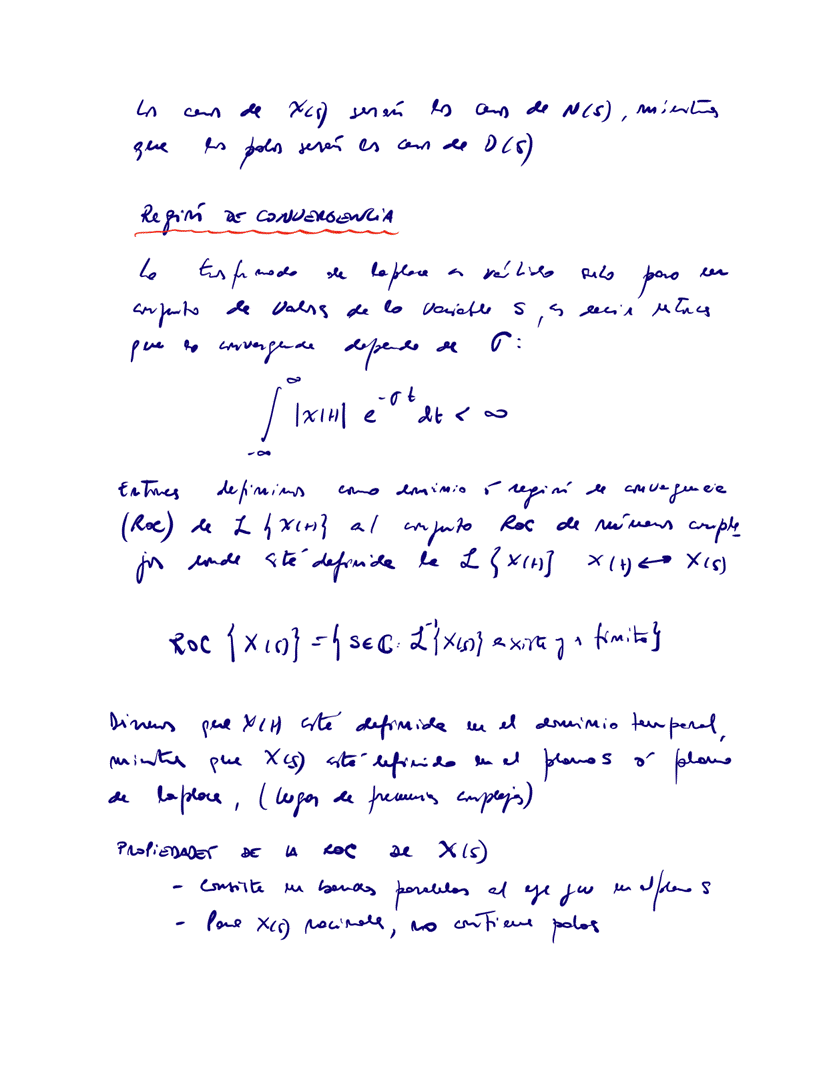 los ceros de X(s) serán los ceros de N(s), mientras
que los polos serán los ceros de D(s)
Región DE CONVERGENCIA
La transformada de Laplace es válida solo para un
conjunto de valores de la variable s, es decir
que la convergencia depende de σ:
∫_{-∞}^{∞} |x(t)| e^{-σt} dt < ∞
Entonces definimos como dominio ó región de convergencia
(ROC) de L{x(t)} al conjunto ROC de números comple
jos donde esté definida la L{x(t)} x(t) ↔ X(s)
ROC {X(s)} = {s∈ℂ: L^{-1}{X(s)} existe y es finita}
Diremos que x(t) está definida en el dominio temporal,
mientras que X(s) está definida en el plano s ó plano
de Laplace, (lugar de frecuencias complejas)
PROPIEDADES DE LA ROC DE X(s)
- Consiste en bandas paralelas al eje jω en el plano s
- Para X(s) racionales, no contiene polos